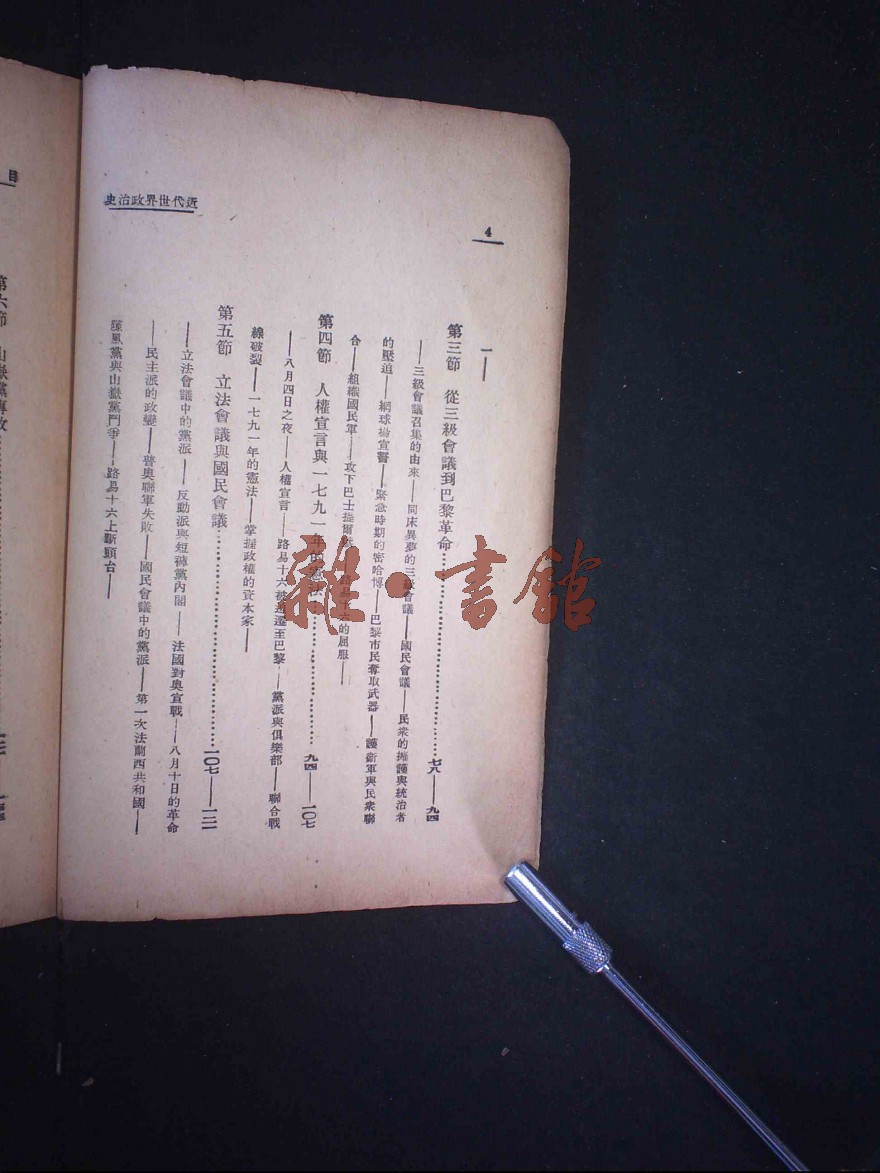 近代世界政治史
4
一——
第三節 從三級會議到巴黎革命……七八——九四
——三級會議召集的由來——同床異夢的三級會議——國民會議——民衆的擁護與統治者
的壓迫——網球塲宣誓——緊急時期的密哈博——巴黎市民奪取武器——護衛軍與民衆聯
合——組織國民軍——攻下巴士提爾 的屈服——
第四節 人權宣言與一七九一年的憲法……九四——一〇七
——八月四日之夜——人權宣言——路易十六被迫遷至巴黎——黨派與俱樂部——聯合戰
線破裂——一七九一年的憲法——掌握政權的資本家——
第五節 立法會議與國民會議……一〇七——一二一
——立法會議中的黨派——反動派與短褲黨內閣——法國對奧宣戰——八月十日的革命
——民主派的政變——普奧聯軍失敗——國民會議中的黨派——第一次法蘭西共和國——
黨與山嶽黨鬥爭——路易十六上斷頭台——
目
第六節 山嶽黨專政
雜·書館